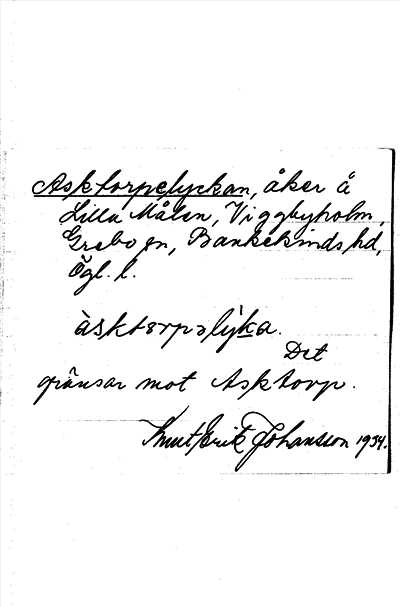 Asktorpelyckan, åker å
Lilla Målen, Viggbyholm,
Grebo sn, Bankekinds hd,
Ögl. l.
àsktorpəlýka.
Det
gränsar mot Asktorp.
Knut Erik Johansson 1934.